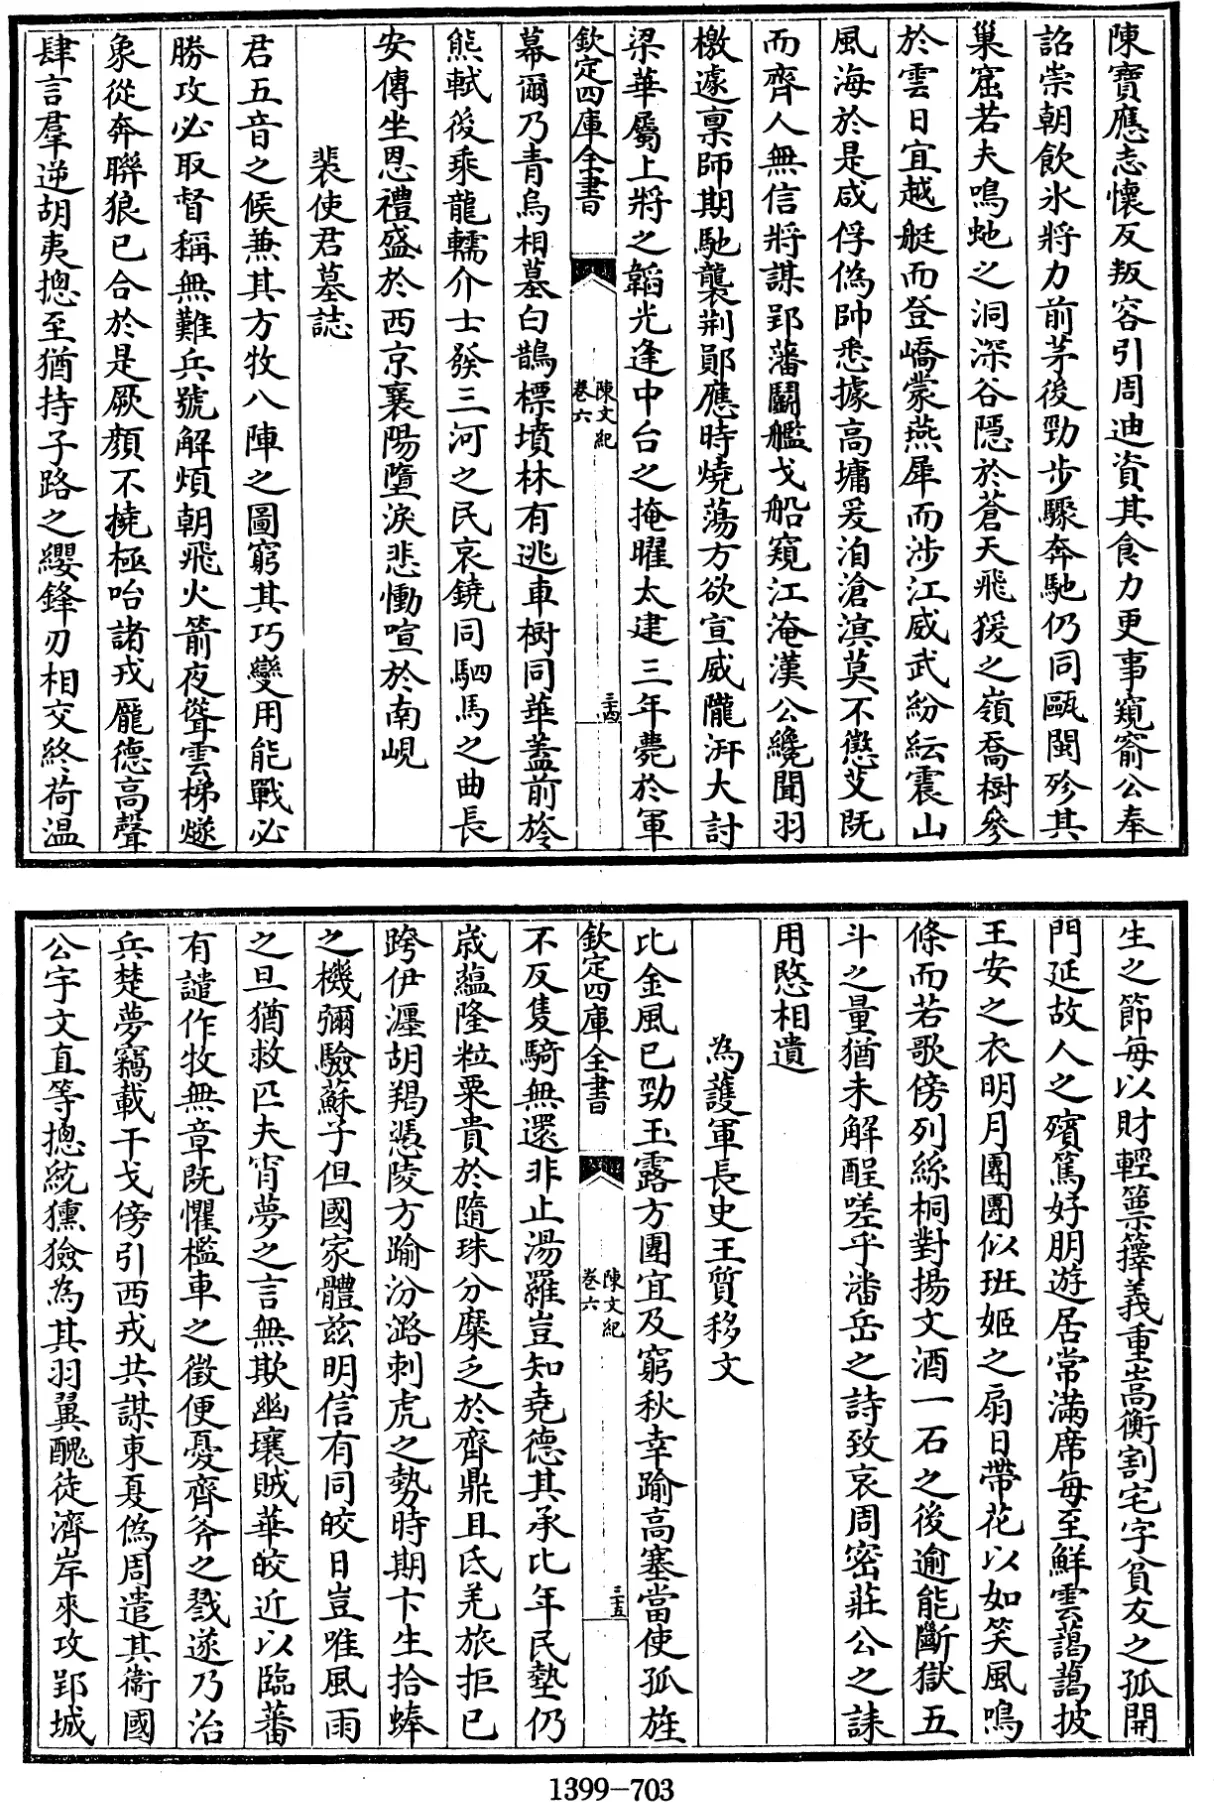 陳寶應志懷反叛容引周迪資其食力更事窺窬公奉
詔崇朝飲氷將力前茅後勁步驟奔馳仍同甌閩殄其
巢窟若夫鳴虵之洞深谷隱於蒼天飛猨之嶺喬樹參
於雲日宜越艇而登嶠蒙燕犀而涉江威武紛紜震山
風海於是咸俘偽帥悉據高墉爰洎滄溟莫不懲艾既
而齊人無信將謀郢藩鬭艦戈船窺江淹漢公纔聞羽
檄遽禀師期馳襲荆鄖應時燒蕩方欲宣威隴汧大討
梁華屬上將之韜光逢中台之掩曜太建三年薨於軍
欽定四庫全書
陳文紀
卷六
三十四
幕爾乃青烏相墓白鶴標墳林有逃車樹同華蓋前旍
熊軾後乘龍轜介士發三河之民哀鐃同駟馬之曲長
安傳坐恩禮盛於西京襄陽墮淚悲慟喧於南峴
裴使君墓誌
君五音之候兼其方牧八陣之圖窮其巧變用能戰必
勝攻必取督稱無難兵號解煩朝飛火箭夜聳雲梯燧
象從奔聯狼已合於是厥顏不撓極咍諸戎龎德高聲
肆言羣逆胡夷摠至猶持子路之纓鋒刃相交終荷温
生之節每以財輕篻籜義重嵩衡割宅字貧友之孤開
門延故人之殯篤好朋遊居常滿席每至鮮雲藹藹披
王安之衣明月團團似班姬之扇日帶花以如笑風鳴
條而若歌傍列絲桐對揚文酒一石之後逾能斷獄五
斗之量猶未解酲嗟乎潘岳之詩致哀周密莊公之誄
用愍相遺
為護軍長史王質移文
比金風已勁玉露方團宜及窮秋幸踰高塞當使孤旌
欽定四庫全書
陳文紀
卷六
三十五
不反隻騎無還非止湯羅豈知堯德其承比年民墊仍
歲蘊隆粒粟貴於隨珠分糜乏於齊鼎且氐羌旅拒已
跨伊瀍胡羯憑陵方踰汾潞刺虎之勢時期卞生拾蜯
之機彌驗蘇子但國家體兹明信有同皎日豈唯風雨
之旦猶救匹夫宵夢之言無欺幽壤賊華皎近以臨蕃
有譴作牧無章既懼檻車之徵便憂齊斧之戮遂乃治
兵楚夢竊載干戈傍引西戎共謀東夏偽周遣其衞國
公宇文直等摠統獯獫為其羽翼醜徒濟岸來攻郢城
1399-703